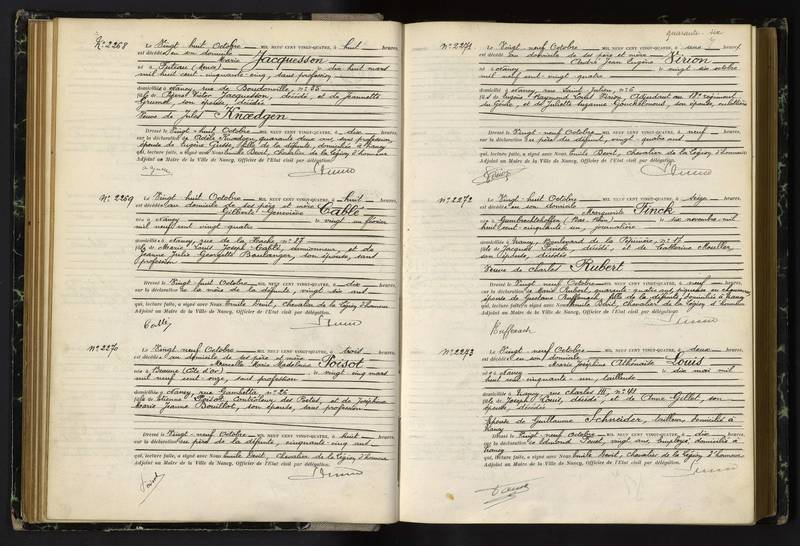 N° 2268
Le Vingt-huit Octobre MIL NEUF CENT VINGT-QUATRE, à huit heures,
est décédée en son domicile
Marie Jacquesson
née à Puteaux (Seine) le dix huit mars
mil huit cent cinquante cinq, sans profession
domiciliée à Nancy, rue de Boudonville, n° 35
fille de Pierre Victor Jacquesson, décédé, et de Jeannette
son épouse, décédée
Veuve de Jules Knoedgen
Dressé le Vingt-huit Octobre MIL NEUF CENT VINGT-QUATRE, à dix heures,
sur la déclaration de Odile Knoedgen, quarante deux ans, sans profession
épouse de Eugène, fille de la défunte, domiciliée à Nancy
qui, lecture faite, a signé avec Nous Emile Devit, Chevalier de la Légion d'honneur
Adjoint au Maire de la Ville de Nancy, Officier de l'Etat civil par délégation.
N° 2269
Le Vingt huit Octobre MIL NEUF CENT VINGT-QUATRE, à huit heures,
est décédée au domicile de ses père et mère
Gilberte Geneviève Cablé
née à Nancy le vingt un février
mil neuf cent vingt quatre
domiciliée à Nancy, rue de la Hache, n° 27
fille de Marie Louis Joseph Cablé, camionneur, et de
Jeanne Julie Georgette Boulanger, son épouse, sans
profession
Dressé le Vingt-huit Octobre MIL NEUF CENT VINGT-QUATRE, à dix heures,
sur la déclaration de la mère de la défunte, vingt six ans
qui, lecture faite, a signé avec Nous Emile Devit, Chevalier de la Légion d'honneur
Adjoint au Maire de la Ville de Nancy, Officier de l'Etat civil par délégation.
Cablé
N° 2270
Le Vingt-neuf Octobre MIL NEUF CENT VINGT-QUATRE, à trois heures,
est décédée au domicile de ses père et mère
Marcelle Marie Madeleine Poisot
née à Beaune (Côte d'or) le vingt cinq mars
mil neuf cent onze, sans profession
domiciliée à Nancy, rue Gambetta, n° 25
fille de Etienne Poisot, Contrôleur des Postes, et de Joséphine
Marie Jeanne Bouillot, son épouse, sans profession
Dressé le Vingt-neuf Octobre MIL NEUF CENT VINGT-QUATRE, à huit heures,
sur la déclaration du père de la défunte, cinquante cinq ans
qui, lecture faite, a signé avec Nous Emile Devit, Chevalier de la Légion d'honneur
Adjoint au Maire de la Ville de Nancy, Officier de l'Etat civil par délégation.
Poisot
quarante-six
N° 2271
Le Vingt neuf Octobre MIL NEUF CENT VINGT-QUATRE, à heures,
est décédé au domicile de ses père et mère
André Jean Eugène Vérion
né à Nancy le vingt six octobre
mil neuf cent vingt quatre
domicilié à Nancy, rue Saint Julien, n° 6
fils de Eugène Raymond Louis Vérion, Adjudant au 18e régiment
du Génie, et de Juliette Suzanne, son épouse,
Dressé le Vingt-neuf Octobre MIL NEUF CENT VINGT-QUATRE, à neuf heures,
sur la déclaration du père du défunt, vingt quatre ans
qui, lecture faite, a signé avec Nous Emile Devit, Chevalier de la Légion d'honneur
Adjoint au Maire de la Ville de Nancy, Officier de l'Etat civil par délégation.
N° 2272
Le Vingt huit Octobre MIL NEUF CENT VINGT-QUATRE, à seize heures,
est décédée en son domicile
Marguerite Finck
née à Gumbrechtshoffen (Bas Rhin) le six novembre mil
huit cent cinquante un, journalière
domiciliée à Nancy, Boulevard de la Pépinière, n° 17
fille de Jacques Finck, décédé, et de Catherine Moeller,
son épouse, décédée
Veuve de Charles Rubert
Dressé le Vingt neuf Octobre MIL NEUF CENT VINGT-QUATRE, à neuf heures,
sur la déclaration de Marie Rubert, quarante quatre ans, piqueuse en chaussures
épouse de Gustave Kuffenach, fille de la défunte, domiciliée à Nancy
qui, lecture faite, a signé avec Nous Emile Devit, Chevalier de la Légion d'honneur
Adjoint au Maire de la Ville de Nancy, Officier de l'Etat civil par délégation.
N° 2273
Le Vingt-neuf Octobre MIL NEUF CENT VINGT-QUATRE, à deux heures,
est décédée en son domicile
Marie Joséphine Athénaïse Louis
née à Nancy le dix mai mil
huit cent cinquante-un, tailleuse
domiciliée à Nancy, rue Charles III, n° 41
fille de Joseph Louis, décédé, et de Anne Gillet, son
épouse, décédée
Epouse de Guillaume Schneider, tailleur, domicilié à
Nancy
Dressé le Vingt-neuf Octobre MIL NEUF CENT VINGT-QUATRE, à dix heures,
sur la déclaration de Edmond, vingt ans, employé, domicilié à
Nancy
qui, lecture faite, a signé avec Nous Emile Devit, Chevalier de la Légion d'honneur
Adjoint au Maire de la Ville de Nancy, Officier de l'Etat civil par délégation.